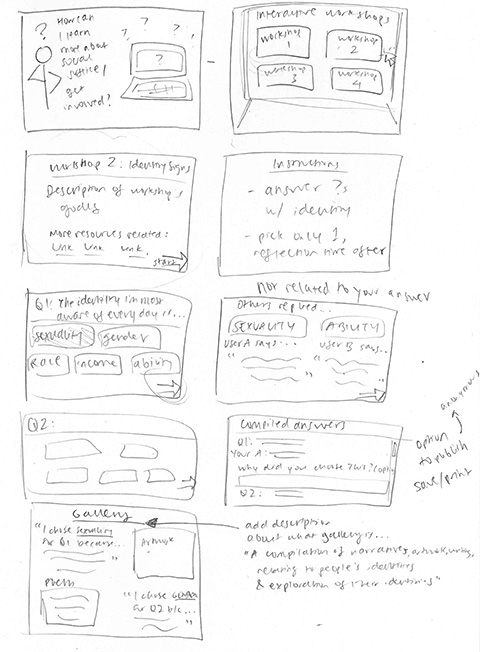 ?
How can
I learn
more about
social
justice/
get
involved?
? ? ? ?
?
Interactive workshops
workshop
1
workshop
2
workshop
3
workshop
4
workshop 2: Identity Signs
Description of workshop's
goals
More resources related:
link link link
start
Instructions
- answer ?s
w/ identity
- pick only 1,
reflection time after
Q1: The identity I'm most
aware of every day is...
sexuality gender
Race income ability
Not related to your answer
Others replied...
SEXUALITY ABILITY
User A says... User B says...
"
"
Q2:
Compiled answers
Q1:
Your A:
Why did you choose this? (option
Q2:
anonymous
option
to publish
save/print
Gallery
"I chose sexuality
for Q1 because...
"
Artwork
Poem
"I chose gender
for Q2 b/c...
"
add description
about what gallery is...
"A compilation of narratives, artwork, writing,
relating to people's identities
& exploration of their identities"